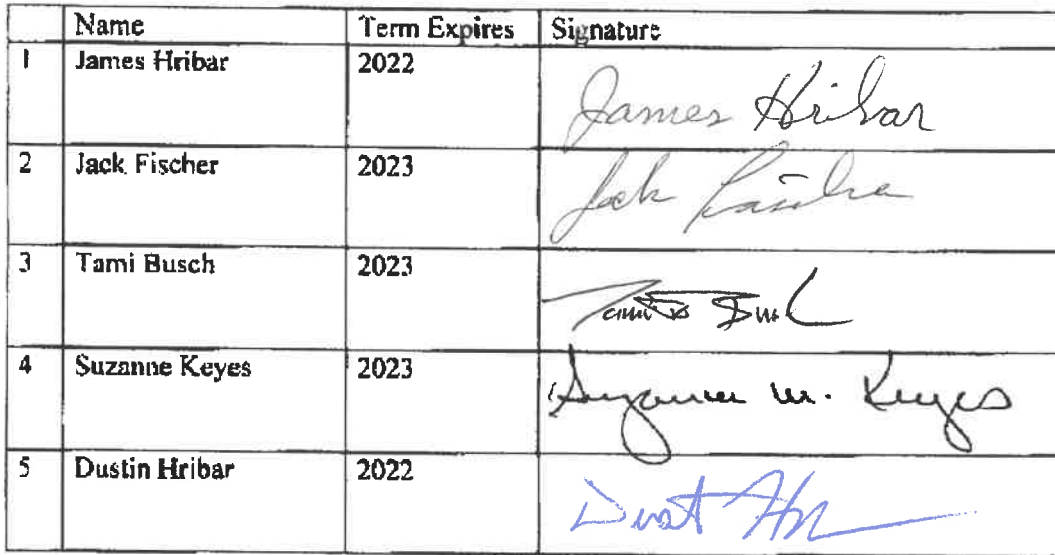 Name Term Expires Signature
1 James Hribar 2022 James Hribar
2 Jack Fischer 2023 Jack
3 Tami Busch 2023
4 Suzanne Keyes 2023 Suzanne M. Keyes
5 Dustin Hribar 2022 Dust